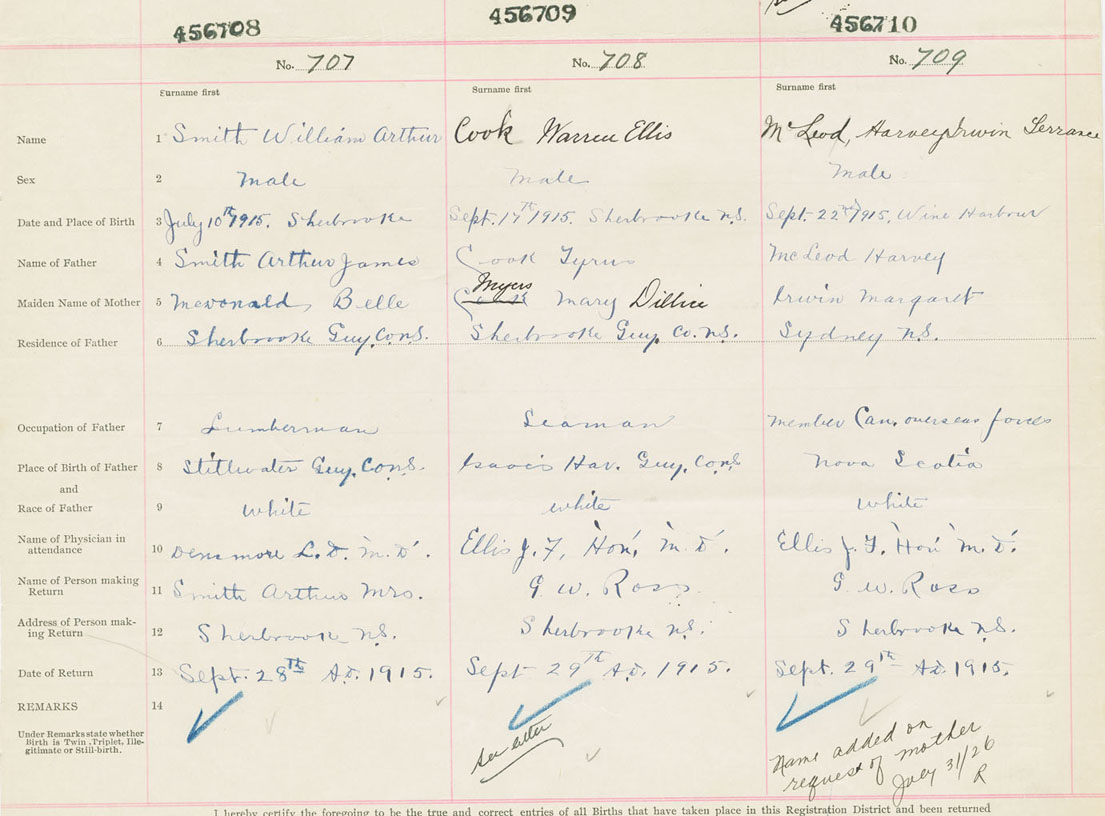 456708 456709 456710
No. 707 No. 708 No. 709
Surname first Surname first Surname first
Name 1 Smith William Arthur Cook Warren Ellis McLeod, Harvey Irwin Terrance
Sex 2 male male male
Date and Place of Birth 3 July 10th 1915. Sherbrooke Sept. 17th 1915. Sherbrooke N.S. Sept. 22nd 1915, Wine Harbour
Name of Father 4 Smith Arthur James Cook Tyrus McLeod Harvey
Myers
Maiden Name of Mother 5 McDonald, Belle Cook Mary Dillie Irwin Margaret
Residence of Father 6 Sherbrooke Guy. Co N.S. Sherbrooke Guy. Co. N.S. Sydney N.S.
Occupation of Father 7 Lumberman Seaman member Can. overseas forces
Place of Birth of Father 8 Stillwater Guy. Co N.S. Isaac's Har. Guy. Co N.S. Nova Scotia
and
Race of Father 9 white white white
Name of Physician in
attendance 10 Densmore L. D. M.D. Ellis J. F. Hon. M.D. Ellis J. F. Hon M.D.
Name of Person making
Return 11 Smith Arthur Mrs. G. W. Ross G. W. Ross
Address of Person mak-
ing Return 12 Sherbrooke N.S. Sherbrooke N.S. Sherbrooke N.S.
Date of Return 13 Sept. 28th A.D. 1915. Sept 29th A.D. 1915. Sept. 29th A.D. 1915.
REMARKS 14
Under Remarks state whether
Birth is Twin, Triplet, Ille-
gitimate or Still-birth.
see letter
Name added on
request of mother
July 31/26
R
I hereby certify the foregoing to be the true and correct entries of all Births that have taken place in this Registration District and been returned